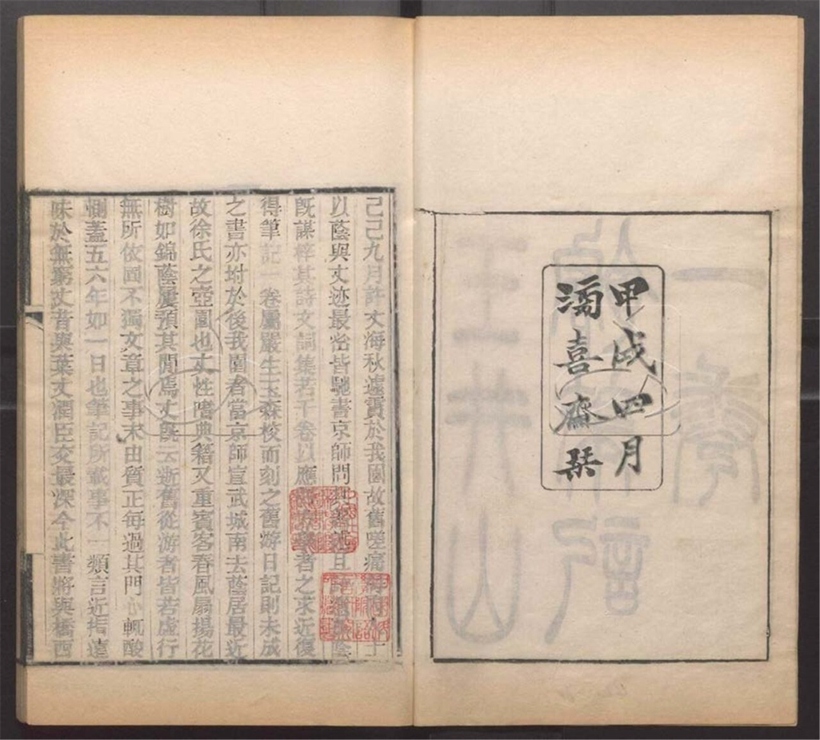 甲戌四月
滂喜齋栞
己巳九月許丈海秋遽賓於我園故舊嗟痛士
以蔭與丈迹最密皆馳書京師問其著述且蔭
旣謀梓其詩文詞集若干卷以應者之求近復
得筆記一卷屬嚴生玉森校而刻之舊游日記則未成
之書亦坿於後我園者當京師宣武城南去蔭居最近
故徐氏之壺園也丈性嗜典籍又重賓客春風扇揚花
樹如錦蔭屢預其閒焉丈旣云逝舊從游者皆若虛行
無所依固不獨文章之事末由質正每過其門心輒酸
惻蓋五六年如一日也筆記所載事不一類言近指遠
味於無窮丈昔與葉丈潤臣交最深今此書將與橋西